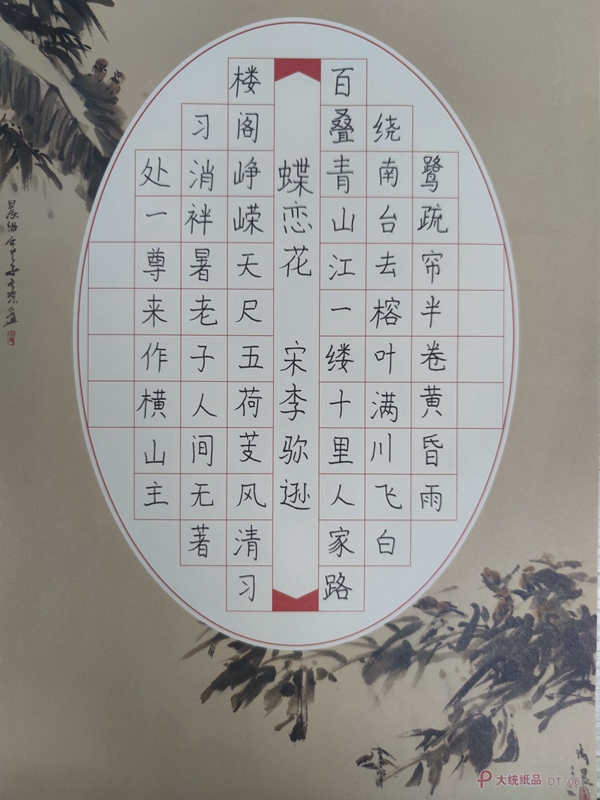 蝶恋花 宋李弥逊
百叠青山江一缕十里人家路
绕南台去榕叶满川飞白
鹭疏帘半卷黄昏雨
楼阁峥嵘天尺五荷芰风清习
习消袢暑老子人间无著
处一尊来作横山主
大统纸品